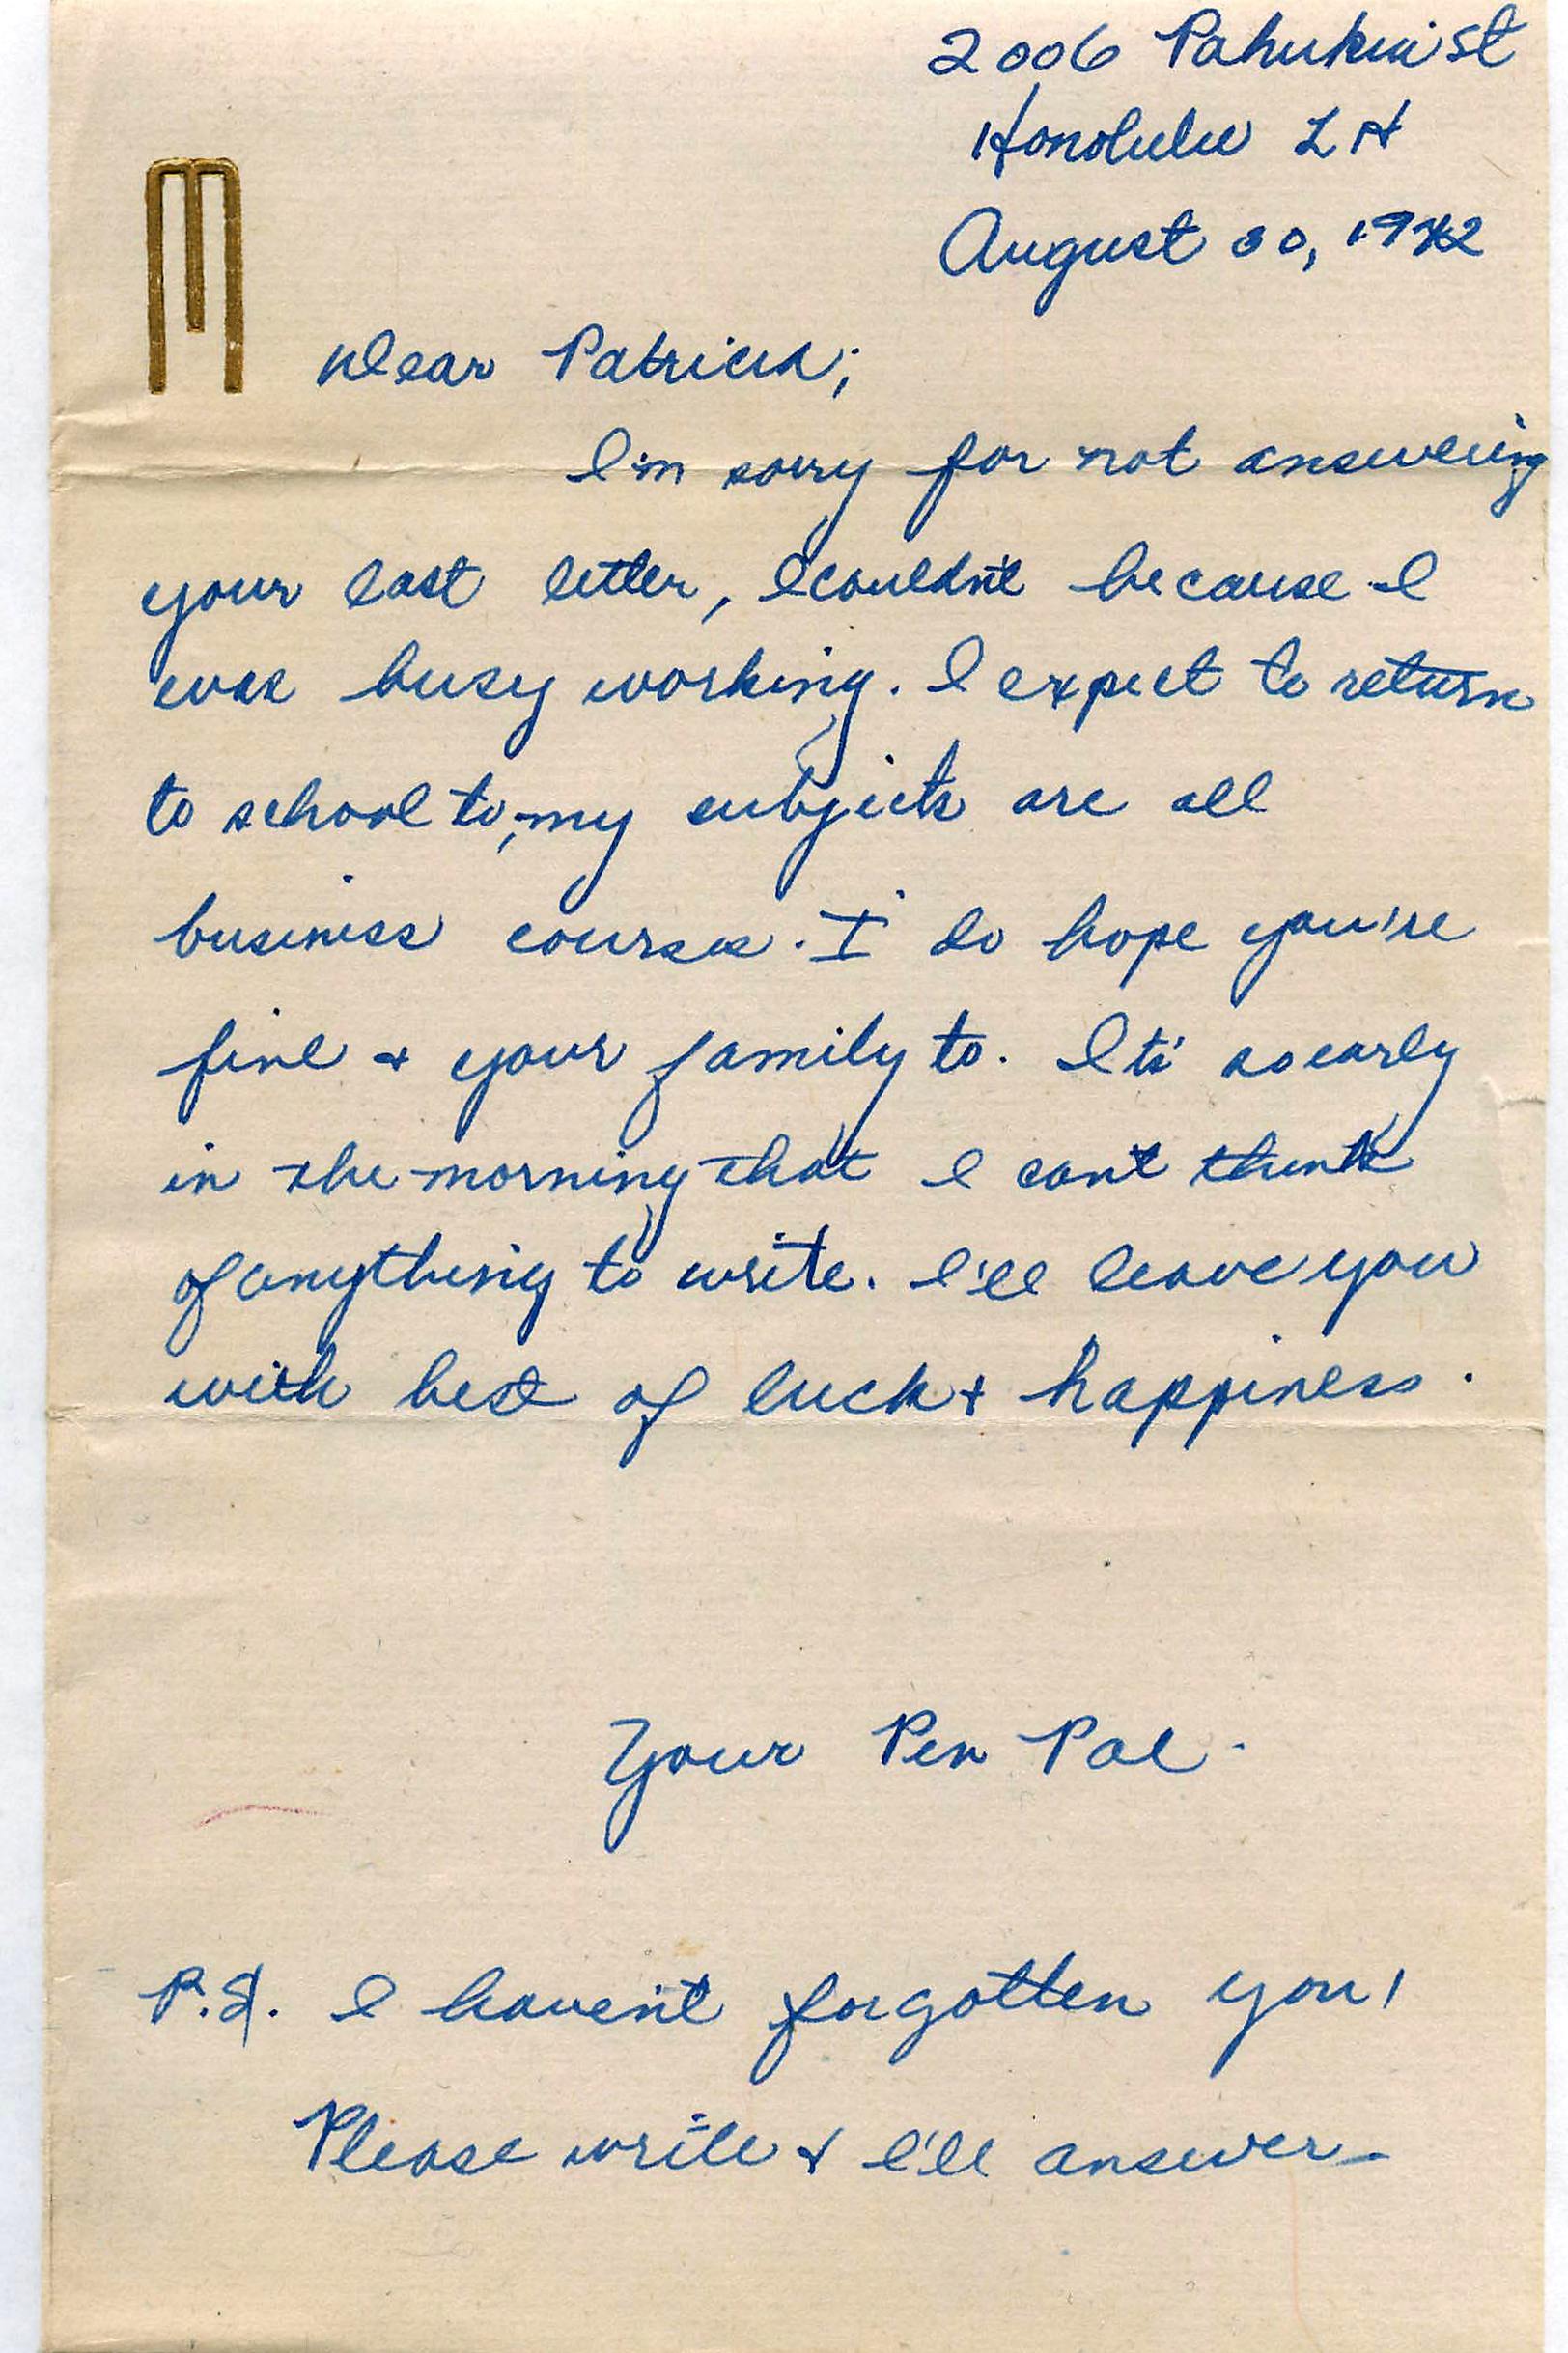 2006 Pahukui St
Honolulu T H
August 30, 1942
M
Dear Patricia;
I'm sorry for not answering
your last letter, I couldn't because I
was busy working. I expect to return
to school to, my subjects are all
business courses. I do hope you're
fine + your family to. Its so early
in the morning that I can't think
of anything to write. I'll leave you
with best of luck + happiness.
Your Pen Pal.
P.S. I haven't forgotten you!
Please write + I'll answer